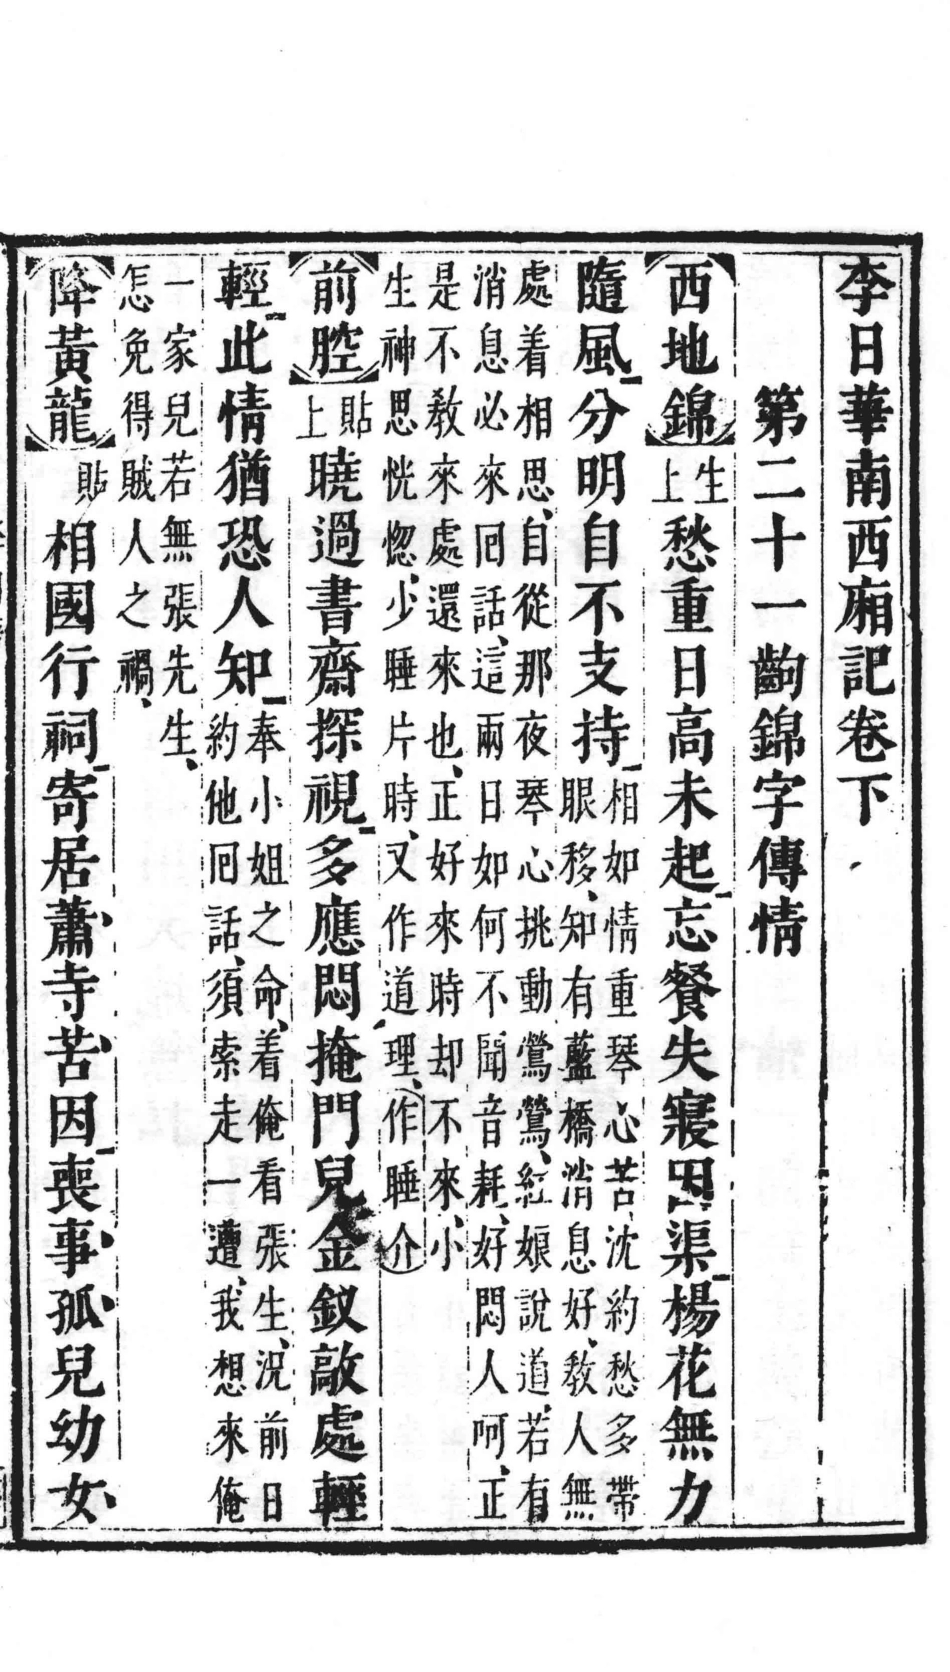 李日華南西廂記卷下
第二十一齣錦字傳情
西地錦
生上
愁重日高未起忘餐失寢因渠楊花無力
隨風分明自不支持
相如情重琴心苦沈約愁多帶
眼移知有藍橋消息好教人無
處着相思自從那夜琴心挑動鶯鶯紅娘說道若有
消息必來囘話這兩日如何不聞音耗好悶人呵正
是不教來處還來也正好來時却不來小
生神思恍惚少睡片時又作道理作睡介
前腔
貼上
曉過書齋探視多應悶掩門兒金釵敲處輕
輕此情猶恐人知
奉小姐之命着俺看張生況前日
約他囘話須索走一遭我想來俺
一家兒若無張先生
怎免得賊人之禍
降黃龍
貼
相國行祠寄居蕭寺苦因喪事孤兒幼女